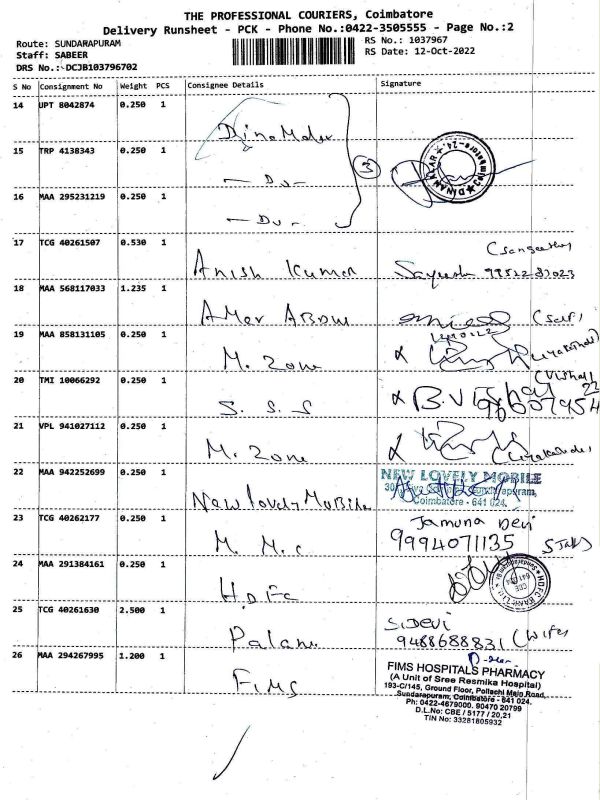 THE PROFESSIONAL COURIERS, Coimbatore
Delivery Runsheet - PCK - Phone No.:0422-3505555 - Page No.:2
Route: SUNDARAPURAM
RS No.: 1037967
Staff: SABEER
RS Date: 12-Oct-2022
DRS No.:-DCJB103796702
S No Consignment No Weight PCS Consignee Details Signature
14 UPT 8042874 0.250 1 Dinamalar
3
15 TRP 4138343 0.250 1 — Do —
16 MAA 295231219 0.250 1 — Do —
17 TCG 40261507 0.530 1 Anish Kumar
18 MAA 568117033 1.235 1 (Self)
19 MAA 858131105 0.250 1 M. Zone
20 TMI 10066292 0.250 1 S. S. S
(Vishal)
21 VPL 941027112 0.250 1 M. Zone
22 MAA 942252699 0.250 1 New Lovely Mobile
NEW LOVELY MOBILE
Coimbatore - 641 024.
23 TCG 40262177 0.250 1 M. M. C
Jamuna Devi
9994071135
24 MAA 291384161 0.250 1 H.D.F.C
25 TCG 40261630 2.500 1
9488688831 (Wife)
26 MAA 294267995 1.200 1 FIMS
FIMS HOSPITALS PHARMACY
(A Unit of Sree Resmika Hospital)
193-C/145, Ground Floor, Pollachi Main Road,
Sundarapuram, Coimbatore - 641 024.
Ph: 0422-4679000. 90470 20799
D.L.No: CBE / 5177 / 20,21
TIN No: 33281805932